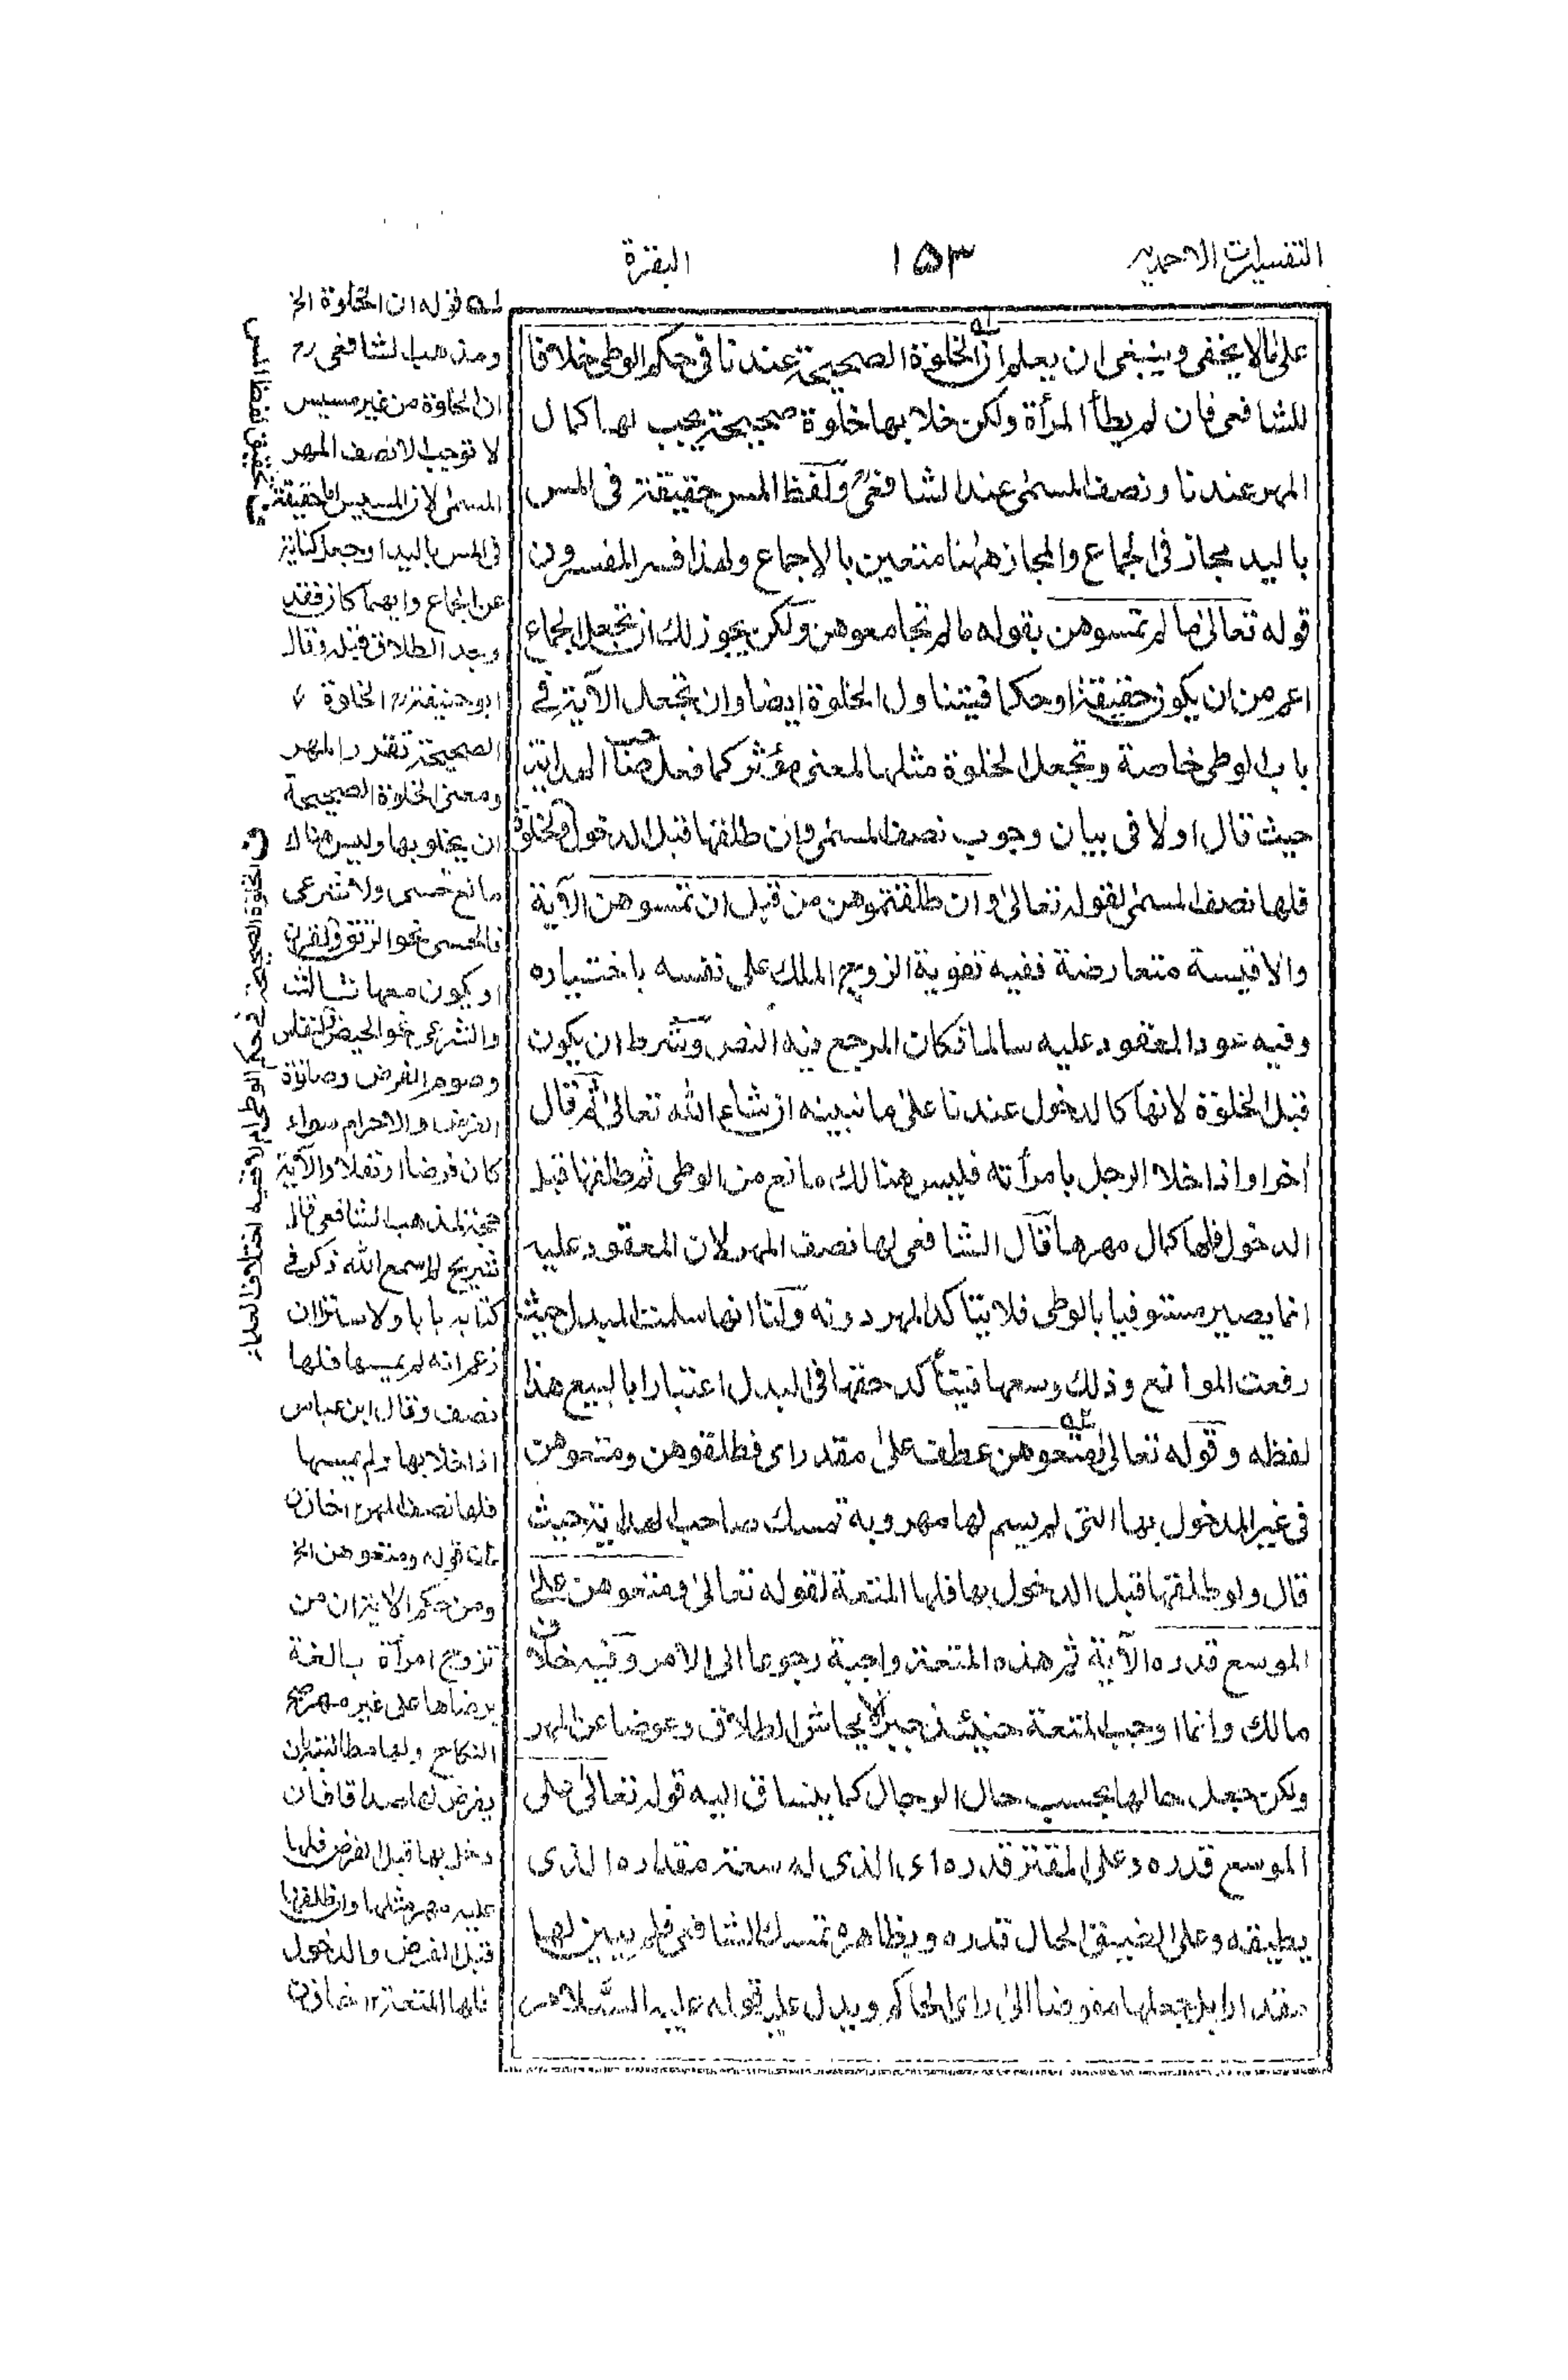 التفسيرات الاحمدية
١٥٣
البقرة
على ما لا يخفى وينبغى ان يعلم ان الخلوة الصحيحة عندنا فى حكم الوطى خلافا
للشافعى فان لم يطأ المرأة ولكن خلا بها خلوة صحيحة يجب لها كمال
المهر عندنا ونصف المسمى عند الشافعىؒ ولفظ المس حقيقة فى المس
باليد مجاز فى الجماع والمجاز ههنا متعين بالاجماع ولهذا فسر المفسرون
قوله تعالى ما لم تمسوهن بقوله ما لم تجامعوهن ولكن يجوز لك ان تجعل الجماع
اعم من ان يكون حقيقة او حكما فيتناول الخلوة ايضا وان تجعل الآية فى
باب الوطى خاصة وتجعل الخلوة مثلها لمعنى مؤثر كما فعل صاحب الهداية
حيث قال اولا فى بيان وجوب نصف المسمى وان طلقها قبل الدخول والخلوة
فلها نصف المسمى لقوله تعالى وان طلقتموهن من قبل ان تمسوهن الآية
والاقيسة متعارضة ففيه تفوية الزوج الملك على نفسه باختياره
وفيه عود المعقود عليه سالما فكان المرجع فيه النص وشرط ان يكون
قبل الخلوة لانها كالدخول عندنا على ما نبينه ان شاء الله تعالى ثم قال
أخرا واذا خلا الرجل بامرأته فليس هنالك مانع من الوطى ثم طلقها قبل
الدخول فلها كمال مهرها قال الشافعى لها نصف المهر لان المعقود عليه
انما يصير مستوفيا بالوطى فلا يتاكد المهر دونه ولنا انها سلمت المبدل حيث
رفعت الموانع وذلك وسعها فيتأكد حقها فى البدل اعتبارا بالبيع هذا
لفظه وقوله تعالى ومتعوهن عطف على مقدر اى فطلقوهن ومتعوهن
فى غير المدخول بها التى لم يسم لها مهر وبه تمسك صاحب الهداية حيث
قال ولو طلقها قبل الدخول بها فلها المتعة لقوله تعالى ومتعوهن على
الموسع قدره الآية ثم هذه المتعة واجبة رجوعا الى الامر وفيه خلاف
مالك وانما اوجب المتعة حينئذ جبرا لايحاش الطلاق وعوضا عن المهر
ولكن جعل حالها بحسب حال الرجال كما ينساق اليه قوله تعالى على
الموسع قدره وعلى المقتر قدره اى الذى له سعة مقداره الذى
يطيقه وعلى الضيق الحال قدره وبظاهره تمسك الشافعى فلم يبين لها
مقدارا بل جعلها مفوضا الى راى الحاكم ويدل عليه قوله عليه السلام
له قوله ان الخلوة الخ
ومذهب الشافعى رح
ان الخلوة من غير مسيس
لا توجب الا نصف المهر
المسمى لان المسيس اما حقيقة
فى المس باليد او جعل كناية
عن الجماع وايهما كان فقد
وجد الطلاق قبله وقال
ابو حنيفة رح الخلوة
الصحيحة تقرر المهر
ومعنى الخلوة الصحيحة
ان يخلو بها وليس هناك
مانع حسى ولا شرعى
فالحسى نحو الرتق والقرن
او يكون معها ثالث
والشرعى نحو الحيض والنفاس
وصوم الفرض وصلوة
الفرض والاحرام سواء
كان فرضا او نفلا والآية
حجة لمذهب الشافعى قال
شريح لم اسمع الله ذكر فى
كتابه بابا ولا سترا ان
زعم انه لم يمسها فلها
نصف وقال ابن عباس
اذا خلا بها ولم يمسها
فلها نصف المهر ١٢ خازن
قوله ومتعوهن الخ
ومن حكم الآية ان من
تزوج امرأة بالغة
برضاها على غير مهر صح
النكاح ولها مطالبته بان
يفرض لها صداقا فان
دخل بها قبل الفرض فلها
عليه مهر مثلها وان طلقها
قبل الفرض والدخول
فلها المتعة ١٢ خازن
تحقيق لفظ المس
ف الخلوة الصحيحة فى حكم الوطى ام لا فيها اختلاف العلماء